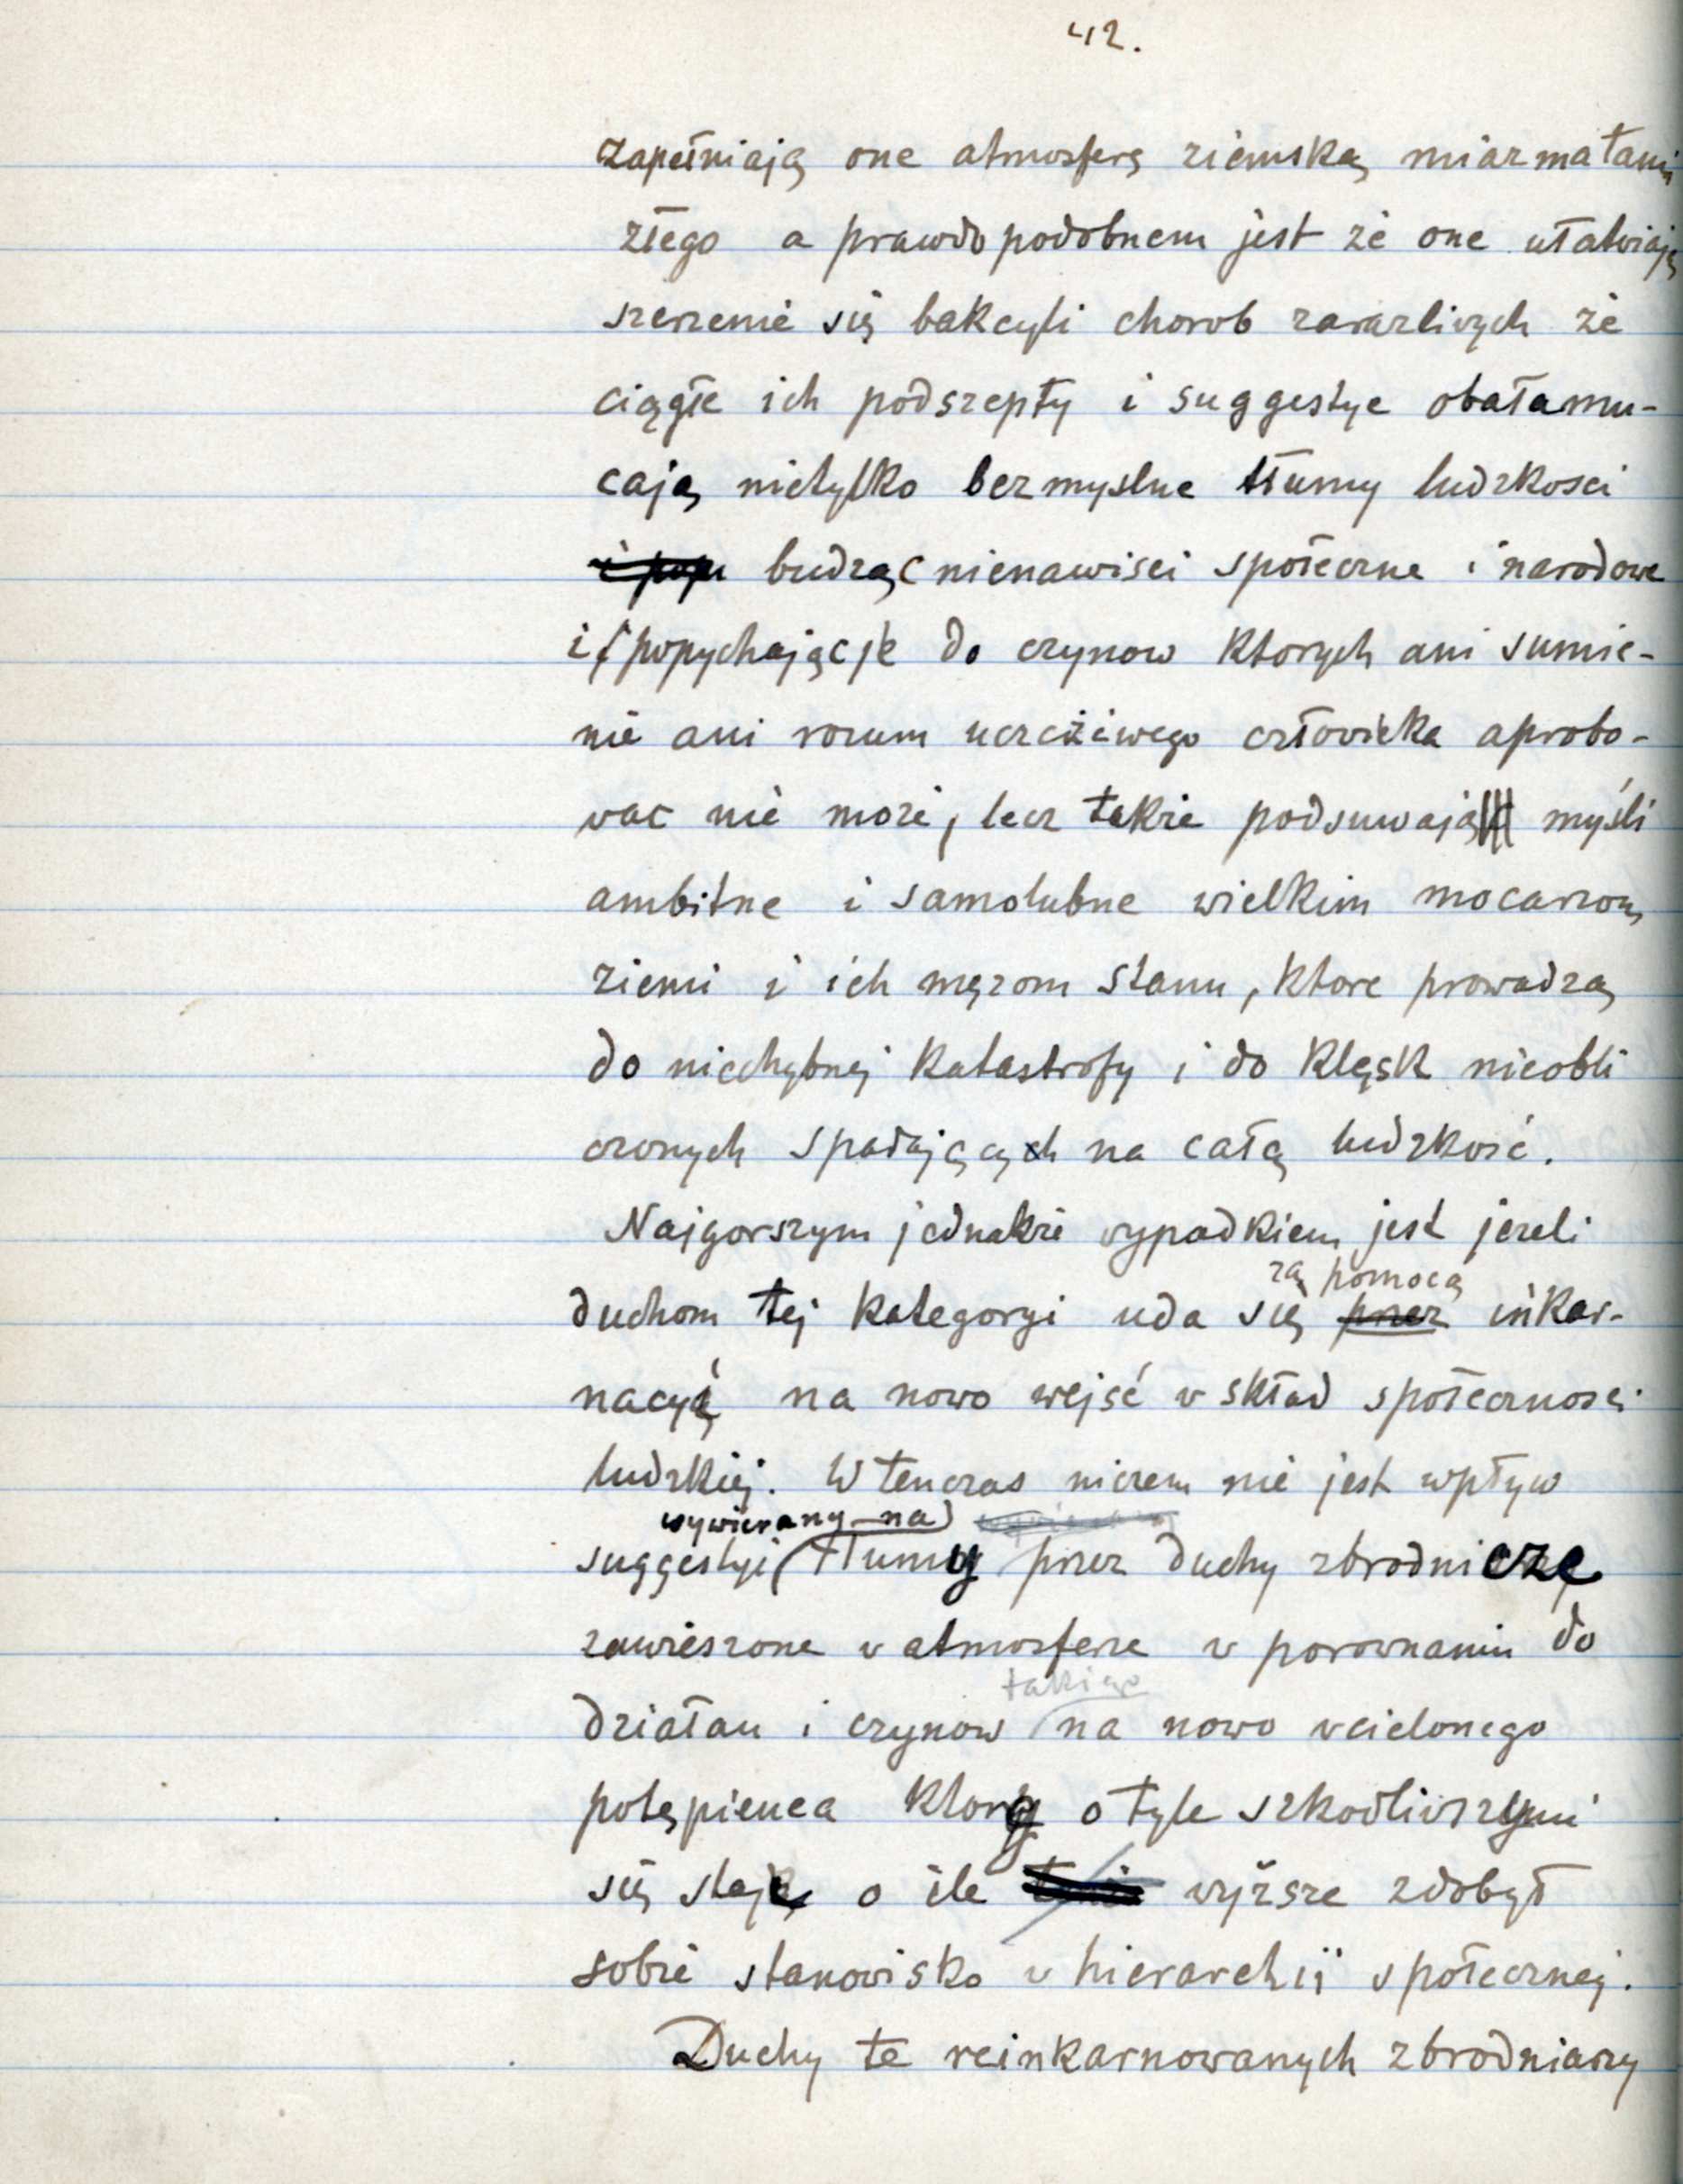 42.
zapełniają one atmosferę ziemską miazmatami
złego a prawdopodobnem jest że one ułatwiają
szerzenie się bakcyli chorob zarazliwych że
ciągłe ich podszepty i suggestye obałamu-
cają nietylko bezmyslne tłumy ludzkosci
budząc nienawisci społeczne i narodowe
i popychając je do czynow ktorych ani sumie-
nie ani rozum uczciwego człowieka aprobo-
wac nie może, lecz także podsuwają myśli
ambitne i samolubne wielkim mocarzom
ziemi i ich mężom stanu, ktore prowadzą
do niechybnej katastrofy i do klęsk nieobli
czonych spadających na całą ludzkość.
Najgorszym jednakże wypadkiem jest jezeli
za pomocą
duchom tej kategoryi uda się przez inkar-
nacyi na nowo wejść w skład społecznosci
ludzkiej. Wtenczas niczem nie jest wpływ
wywierany na
suggestyi tłumy przez duchy zbrodnicze
zawieszone w atmosferze w porownaniu do
takiego
działan i czynow na nowo wcielonego
potępienca ktory o tyle szkodliwszymi
się staje o ile wyższe zdobył
sobie stanowisko w hierarchii społecznej.
Duchy te reinkarnowanych zbrodniarzy